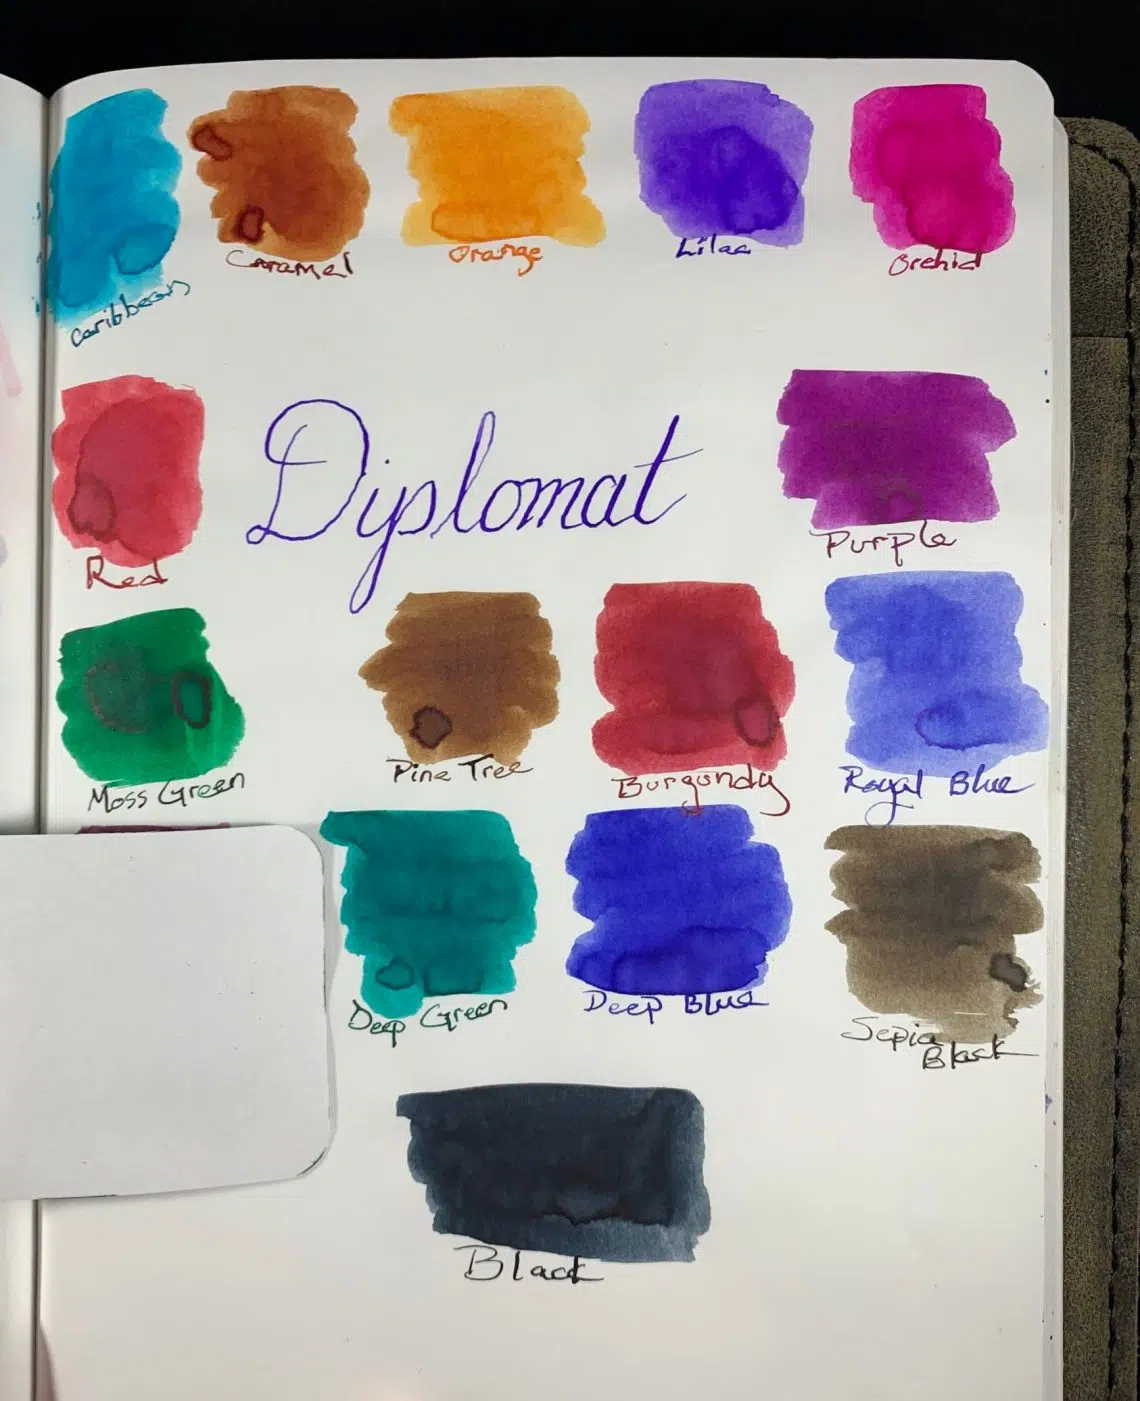 Caribbean
Caramel
Orange
Lilac
Orchid
Red
Diplomat
Purple
Moss Green
Pine Tree
Burgundy
Royal Blue
Deep Green
Deep Blue
Sepia
Black
Black